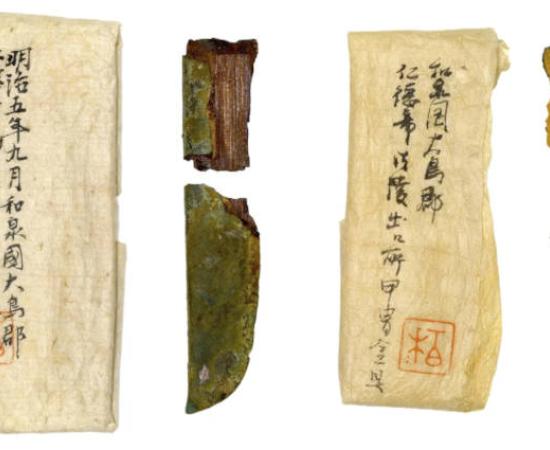 明治五年九月和泉國大鳥郡
和泉国大鳥郡
仁徳帝陵出所甲冑金具
柏